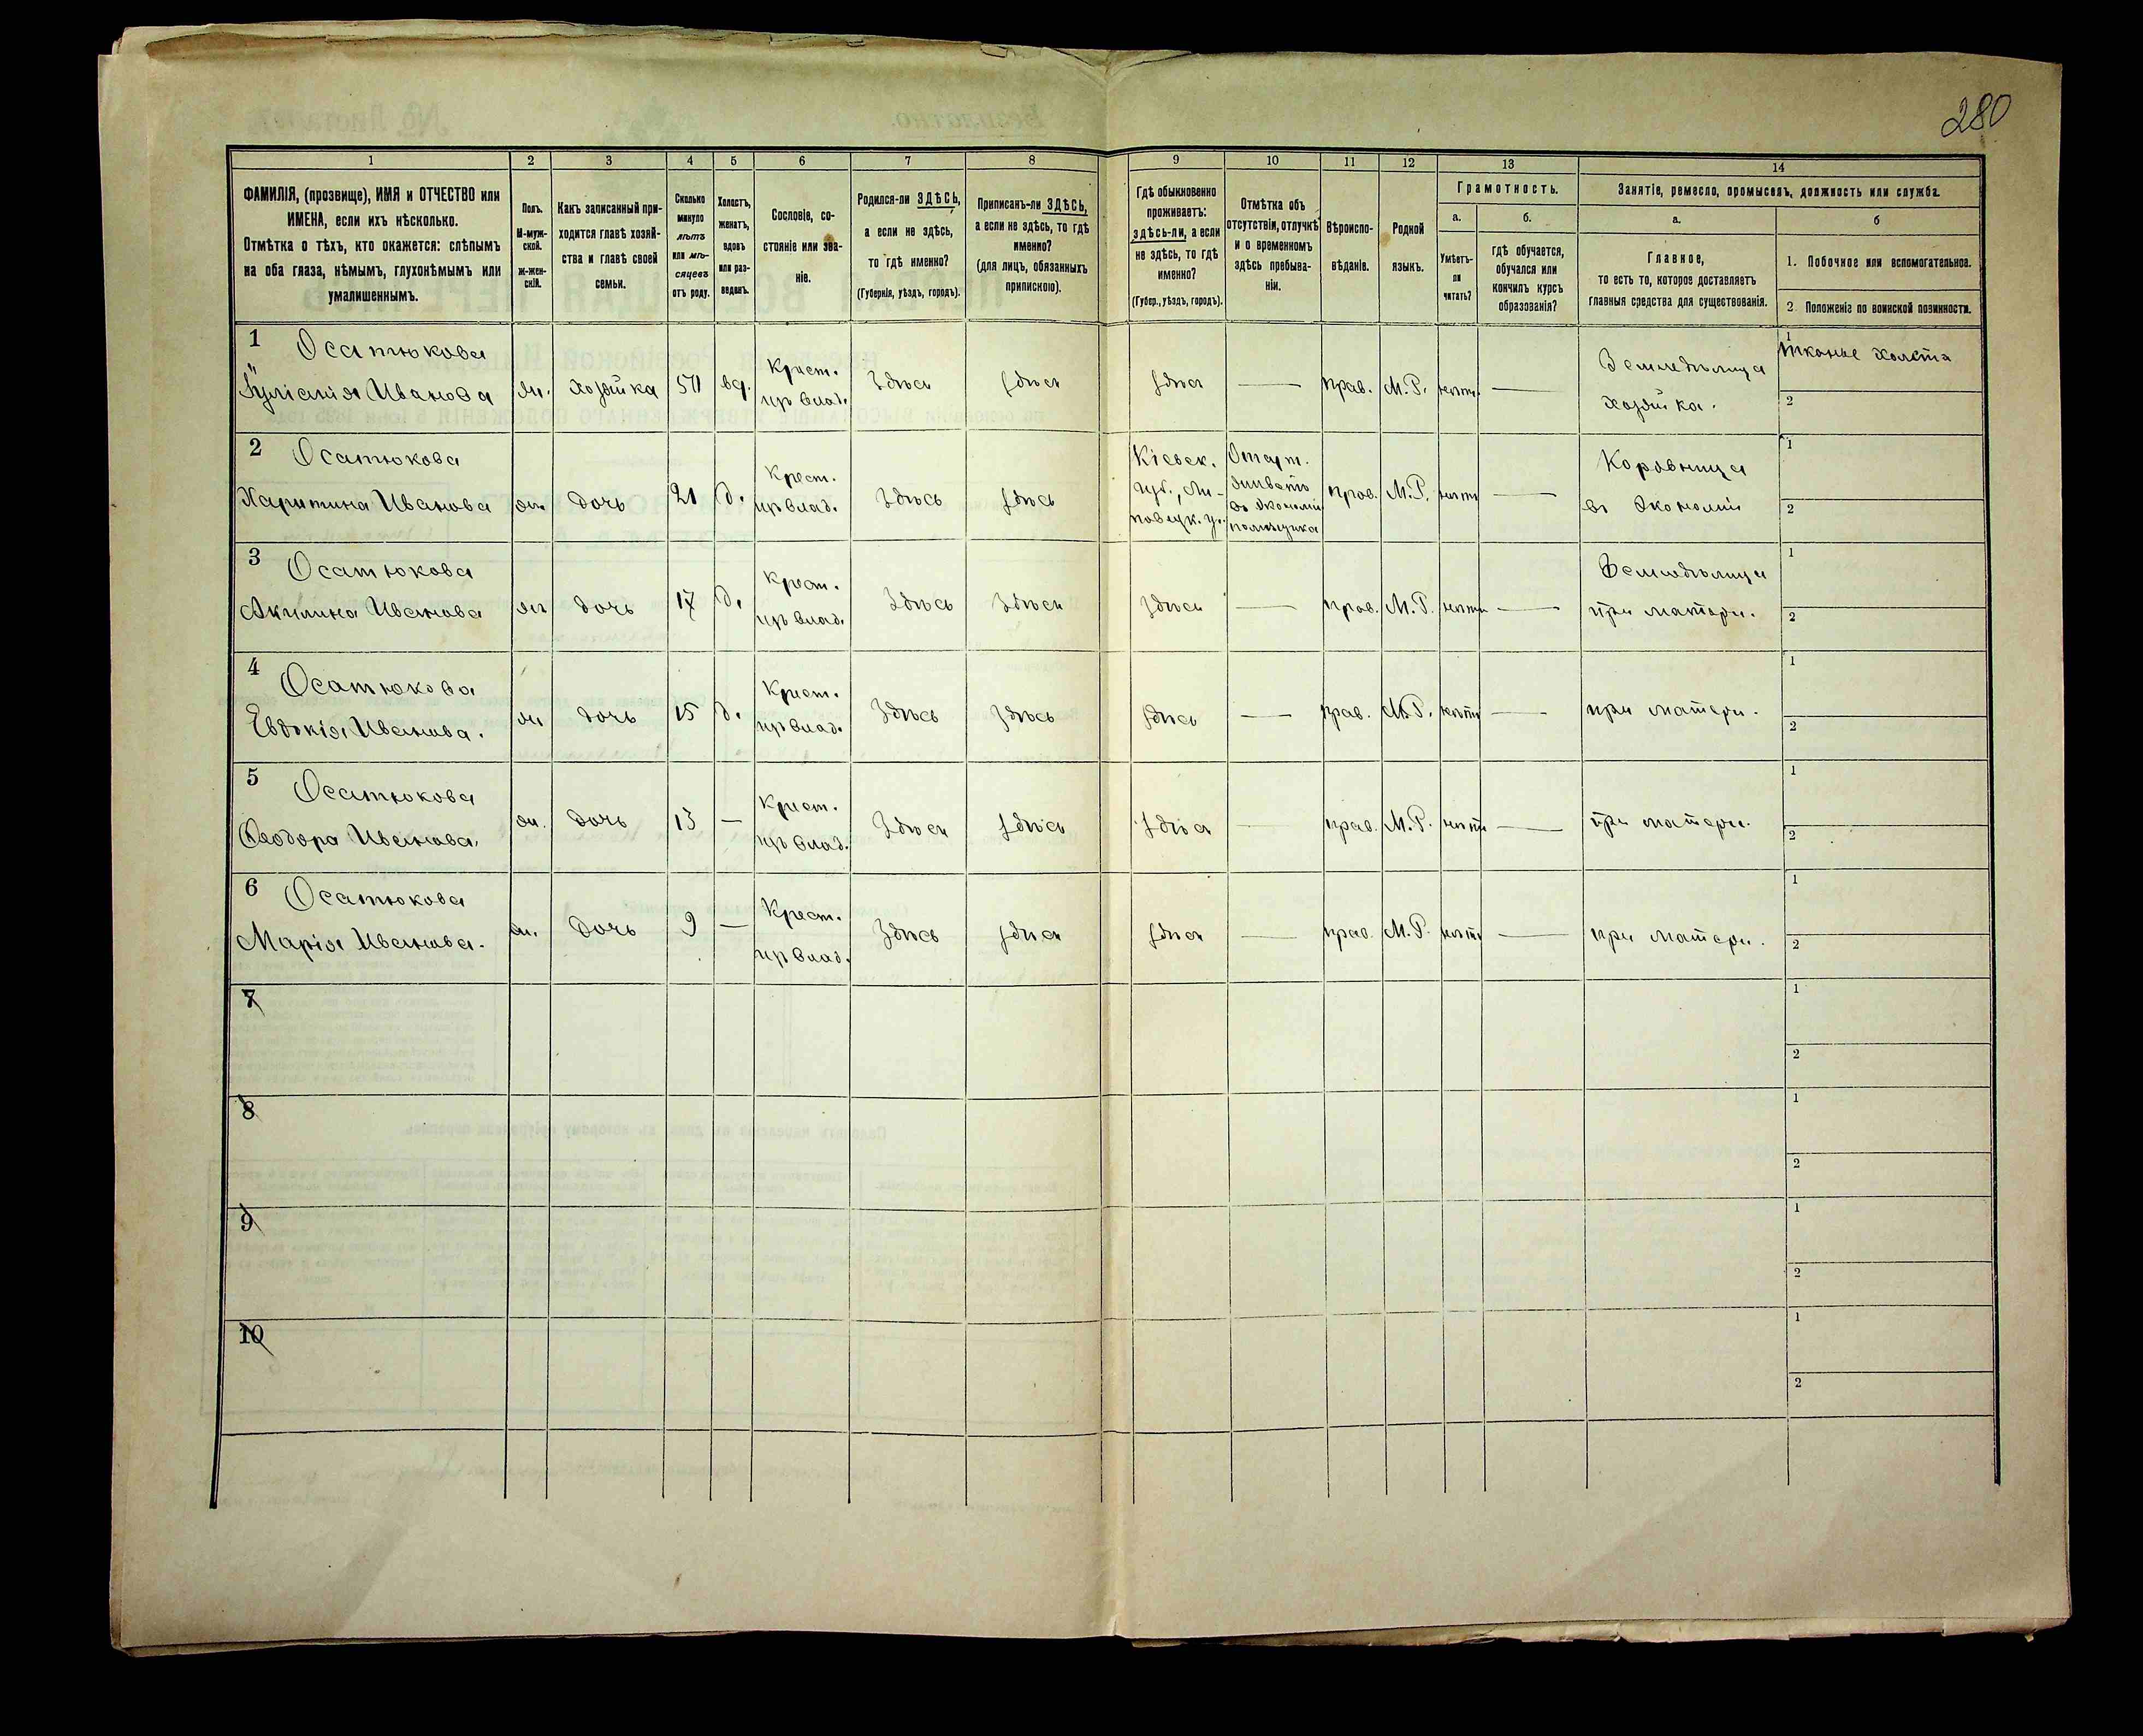 280
1 2 3 4 5 6 7 8 9 10 11 12 13 14
ФАМИЛІЯ, (прозвище), ИМЯ и ОТЧЕСТВО или
ИМЕНА, если ихъ нѣсколько.
Отмѣтка о тѣхъ, кто окажется: слѣпымъ
на оба глаза, нѣмымъ, глухонѣмымъ или
умалишеннымъ.
Полъ.
М-муж-
ской.
ж-жен-
скій.
Какъ записанный при-
ходится главѣ хозяй-
ства и главѣ своей
семьи.
Сколько
минуло
лѣтъ
или мѣ-
сяцевъ
отъ роду.
Холостъ,
женатъ,
вдовъ
или раз-
веденъ.
Сословіе, со-
стояніе или зва-
ніе.
Родился-ли ЗДѢСЬ,
а если не здѣсь,
то гдѣ именно?
(Губернія, уѣздъ, городъ).
Приписанъ-ли ЗДѢСЬ,
а если не здѣсь, то гдѣ
именно?
(для лицъ, обязанныхъ
припискою).
Гдѣ обыкновенно
проживаетъ:
здѣсь-ли, а если
не здѣсь, то гдѣ
именно?
(Губер., уѣздъ, городъ).
Отмѣтка объ
отсутствіи, отлучкѣ
и о временномъ
здѣсь пребыва-
ніи.
Вѣроиспо-
вѣданіе.
Родной
языкъ.
Грамотность.
а.
Умѣетъ-
ли
читать?
б.
гдѣ обучается,
обучался или
кончилъ курсъ
образованія?
Занятіе, ремесло, промыселъ, должность или служба.
а.
Главное,
то есть то, которое доставляетъ
главныя средства для существованія.
б
1. Побочное или вспомогательное.
2. Положеніе по воинской повинности.
1 Осатюкова
Иванова
ж. хозяйка вд.
Крест.
из влад.
Здѣсь здѣсь здѣсь — прав. М.Р. нѣтъ —
Земледѣлица
хозяйка.
1 тканье холста
2
2 Осатюкова
Харитина Иванова
ж. дочь 21 д.
Крест.
из влад.
Здѣсь здѣсь
Кіевск.
губ., Ли-
повецк. у.
въ экономіи
помѣщика
прав. М.Р. нѣтъ —
Коровница
въ экономіи
1
2
3 Осатюкова
Акилина Иванова
ж дочь 17 д.
Крест.
из влад.
Здѣсь Здѣсь здѣсь — прав. М.Р. нѣтъ —
Земледѣлица
при матери.
1
2
4 Осатюкова
Евдокія Иванова.
ж дочь 15 д.
Крест.
из влад.
Здѣсь Здѣсь здѣсь — прав. М.Р. нѣтъ —
при матери.
1
2
5 Осатюкова
Ѳеодора Иванова.
ж. дочь 13 —
Крест.
из влад.
Здѣсь здѣсь здѣсь — прав. М.Р. нѣтъ —
при матери.
1
2
6 Осатюкова
Марія Иванова.
ж. дочь 9 —
Крест.
из влад.
Здѣсь здѣсь здѣсь — прав. М.Р. нѣтъ —
при матери.
1
2
7
1
2
8
1
2
9
1
2
10
1
2